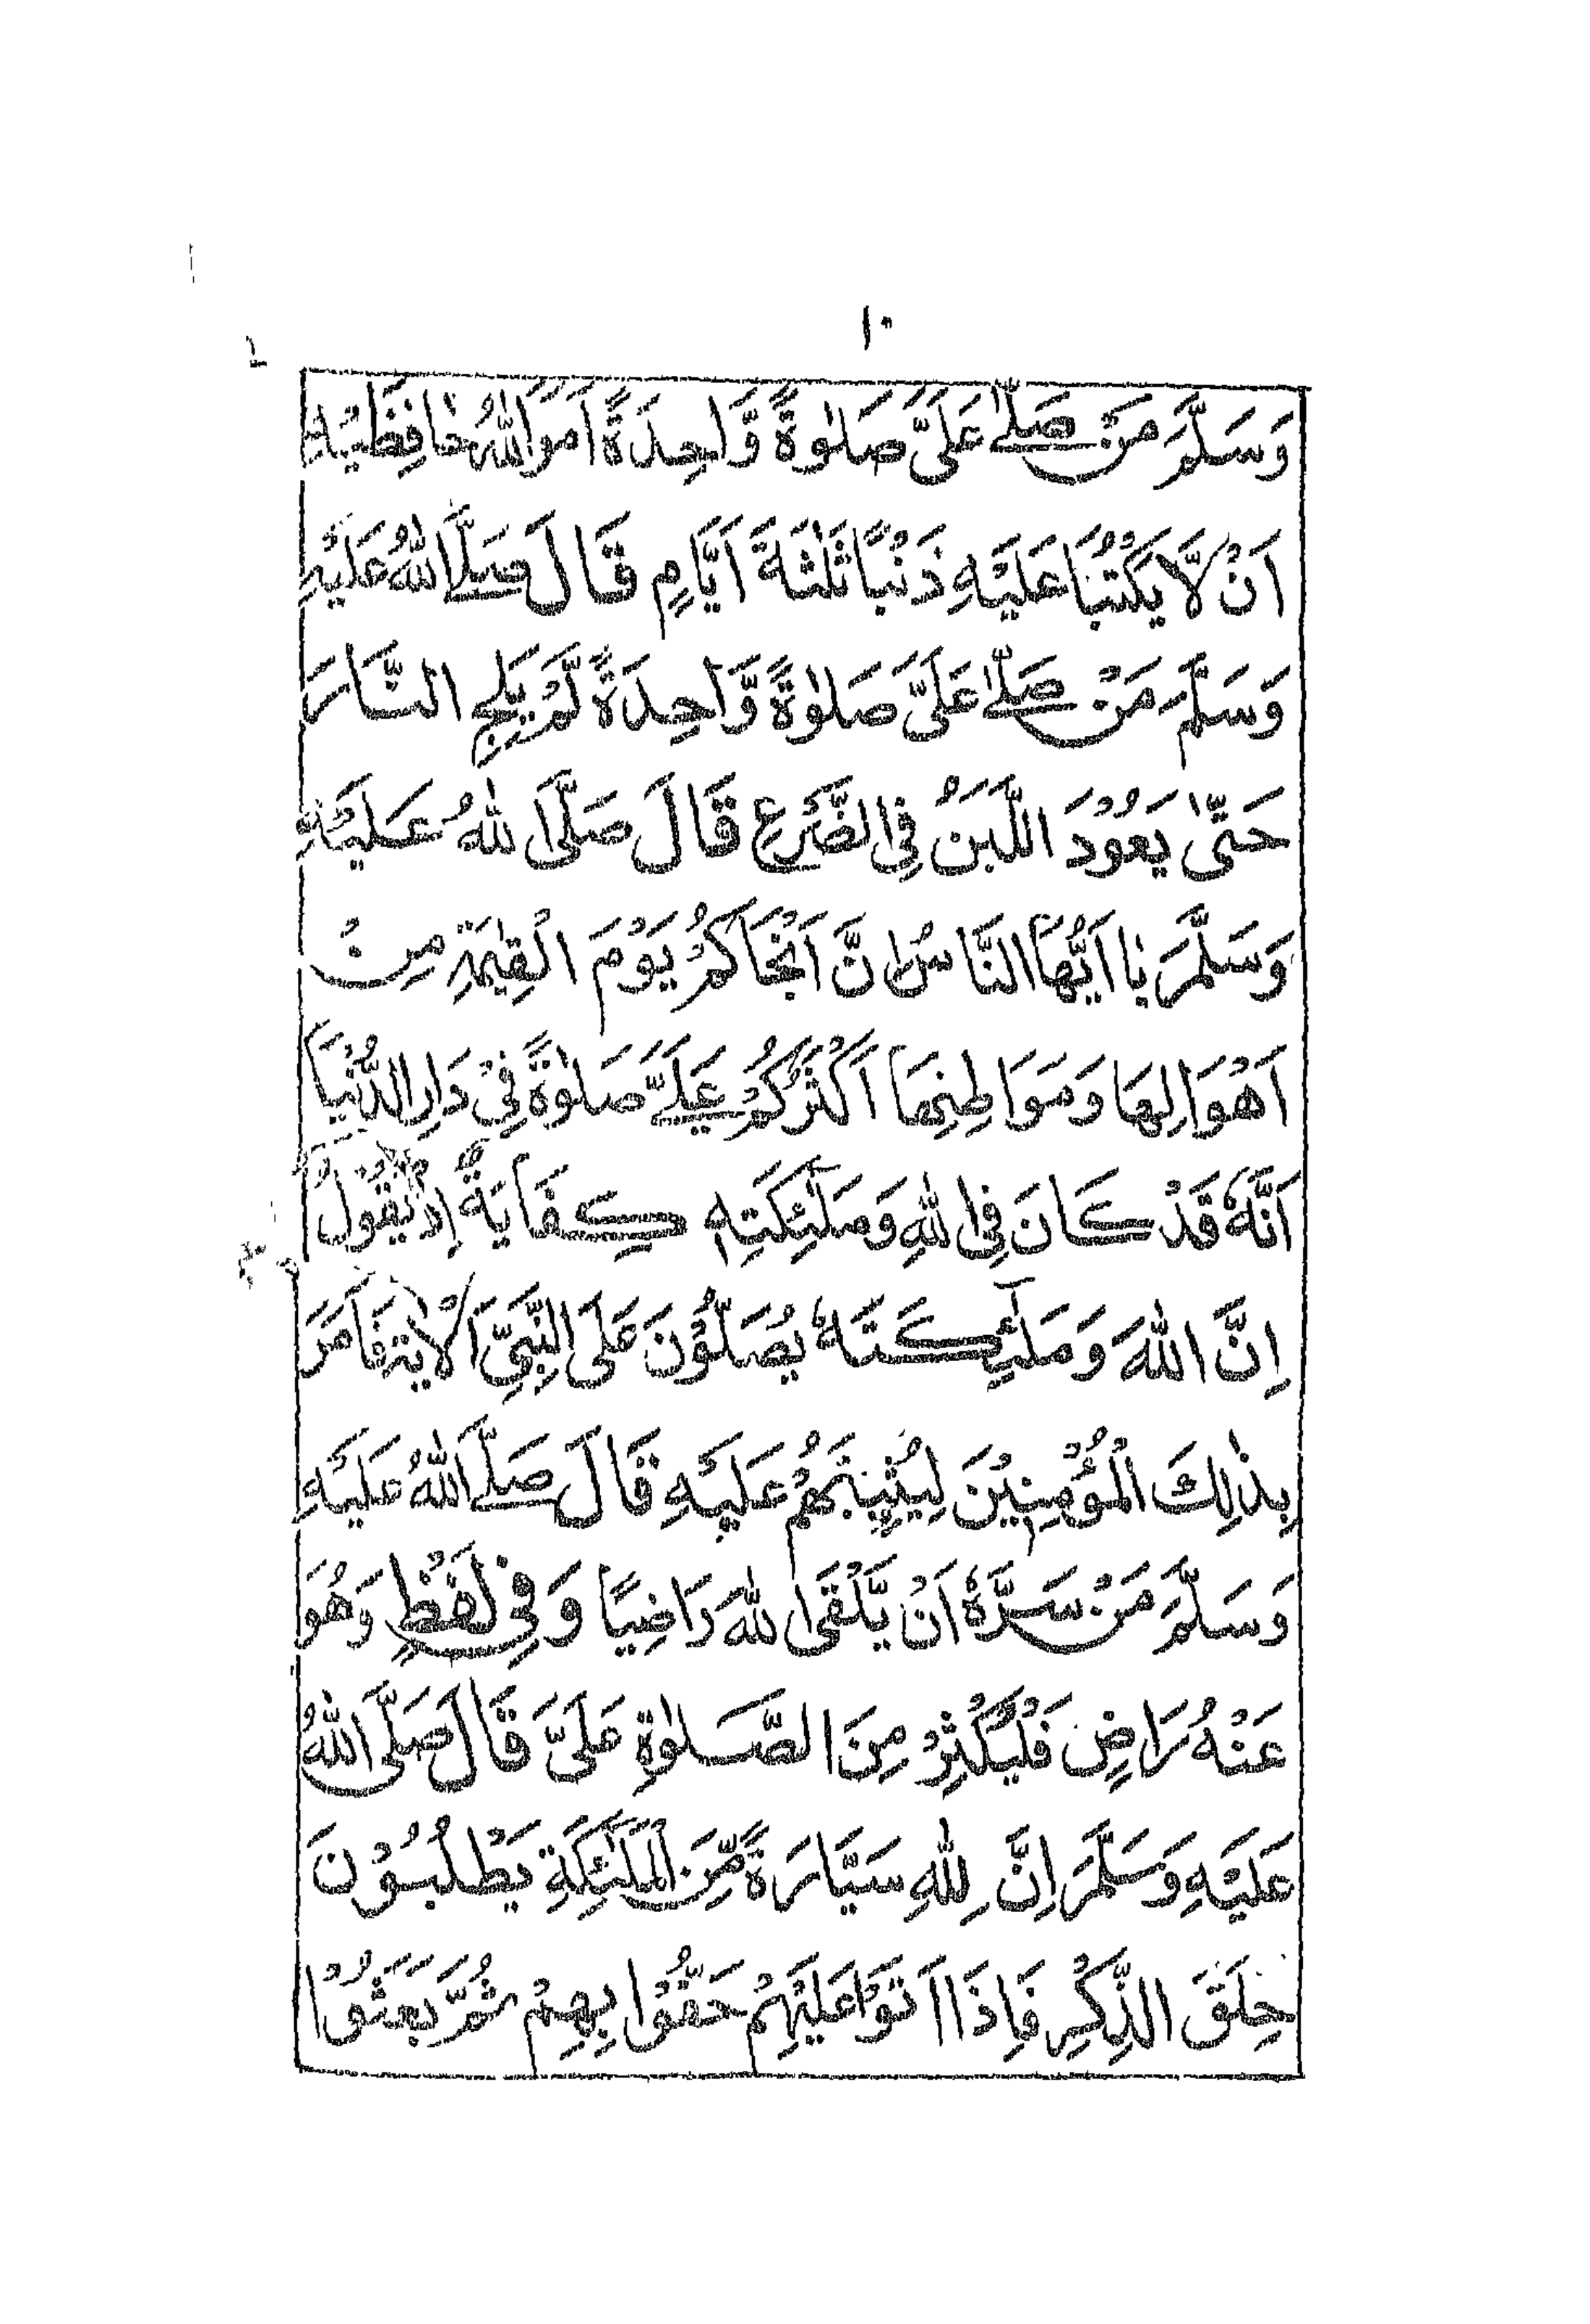 ١٠
وَسَلَّمَ مَنْ صَلّٰے عَلَيَّ صَلٰوةً وَّاحِدَةً اَمَرَاللّٰهُ حَافِظَيْهِ
اَنْ لَّا يَكْتُبَا عَلَيْهِ ذَنْبًا ثَلٰثَةَ اَيَّامٍ قَالَ صَلَّے اللّٰهُ عَلَيْهِ
وَسَلَّمَ مَنْ صَلّٰے عَلَيَّ صَلٰوةً وَّاحِدَةً لَّمْ يَلِجِ النَّارَ
حَتّٰى يَعُوْدَ اللَّبَنُ فِى الضَّرْعِ قَالَ صَلَّى اللّٰهُ عَلَيْهِ
وَسَلَّمَ يَا اَيُّهَا النَّاسُ اِنَّ اَنْجَاكُمْ يَوْمَ الْقِيٰمَةِ مِنْ
اَهْوَالِهَا وَمَوَاطِنِهَا اَكْثَرُكُمْ عَلَيَّ صَلٰوةً فِيْ دَارِالدُّنْيَا
اَنَّهٗ قَدْ كَانَ فِى اللّٰهِ وَمَلٰٓئِكَتِهٖ كِفَايَةٌ اِذْ يَقُوْلُ
اِنَّ اللّٰهَ وَمَلٰٓئِكَتَهٗ يُصَلُّوْنَ عَلَى النَّبِيِّ الْاٰيَةَ فَاَمَرَ
بِذٰلِكَ الْمُؤْمِنِيْنَ لِيُثِيْبَهُمْ عَلَيْهِ قَالَ صَلَّے اللّٰهُ عَلَيْهِ
وَسَلَّمَ مَنْ سَرَّهٗ اَنْ يَّلْقَى اللّٰهَ رَاضِيًا وَفِيْ لَفْظٍ وَهُوَ
عَنْهُ رَاضٍ فَلْيُكْثِرْ مِنَ الصَّلٰوةِ عَلَيَّ قَالَ صَلَّى اللّٰهُ
عَلَيْهِ وَسَلَّمَ اِنَّ لِلّٰهِ سَيَّارَةً مِّنَ الْمَلٰٓئِكَةِ يَطْلُبُوْنَ
حِلَقَ الذِّكْرِ فَاِذَا اَتَوْا عَلَيْهِمْ حَفُّوْا بِهِمْ ثُمَّ بَعَثُوْا